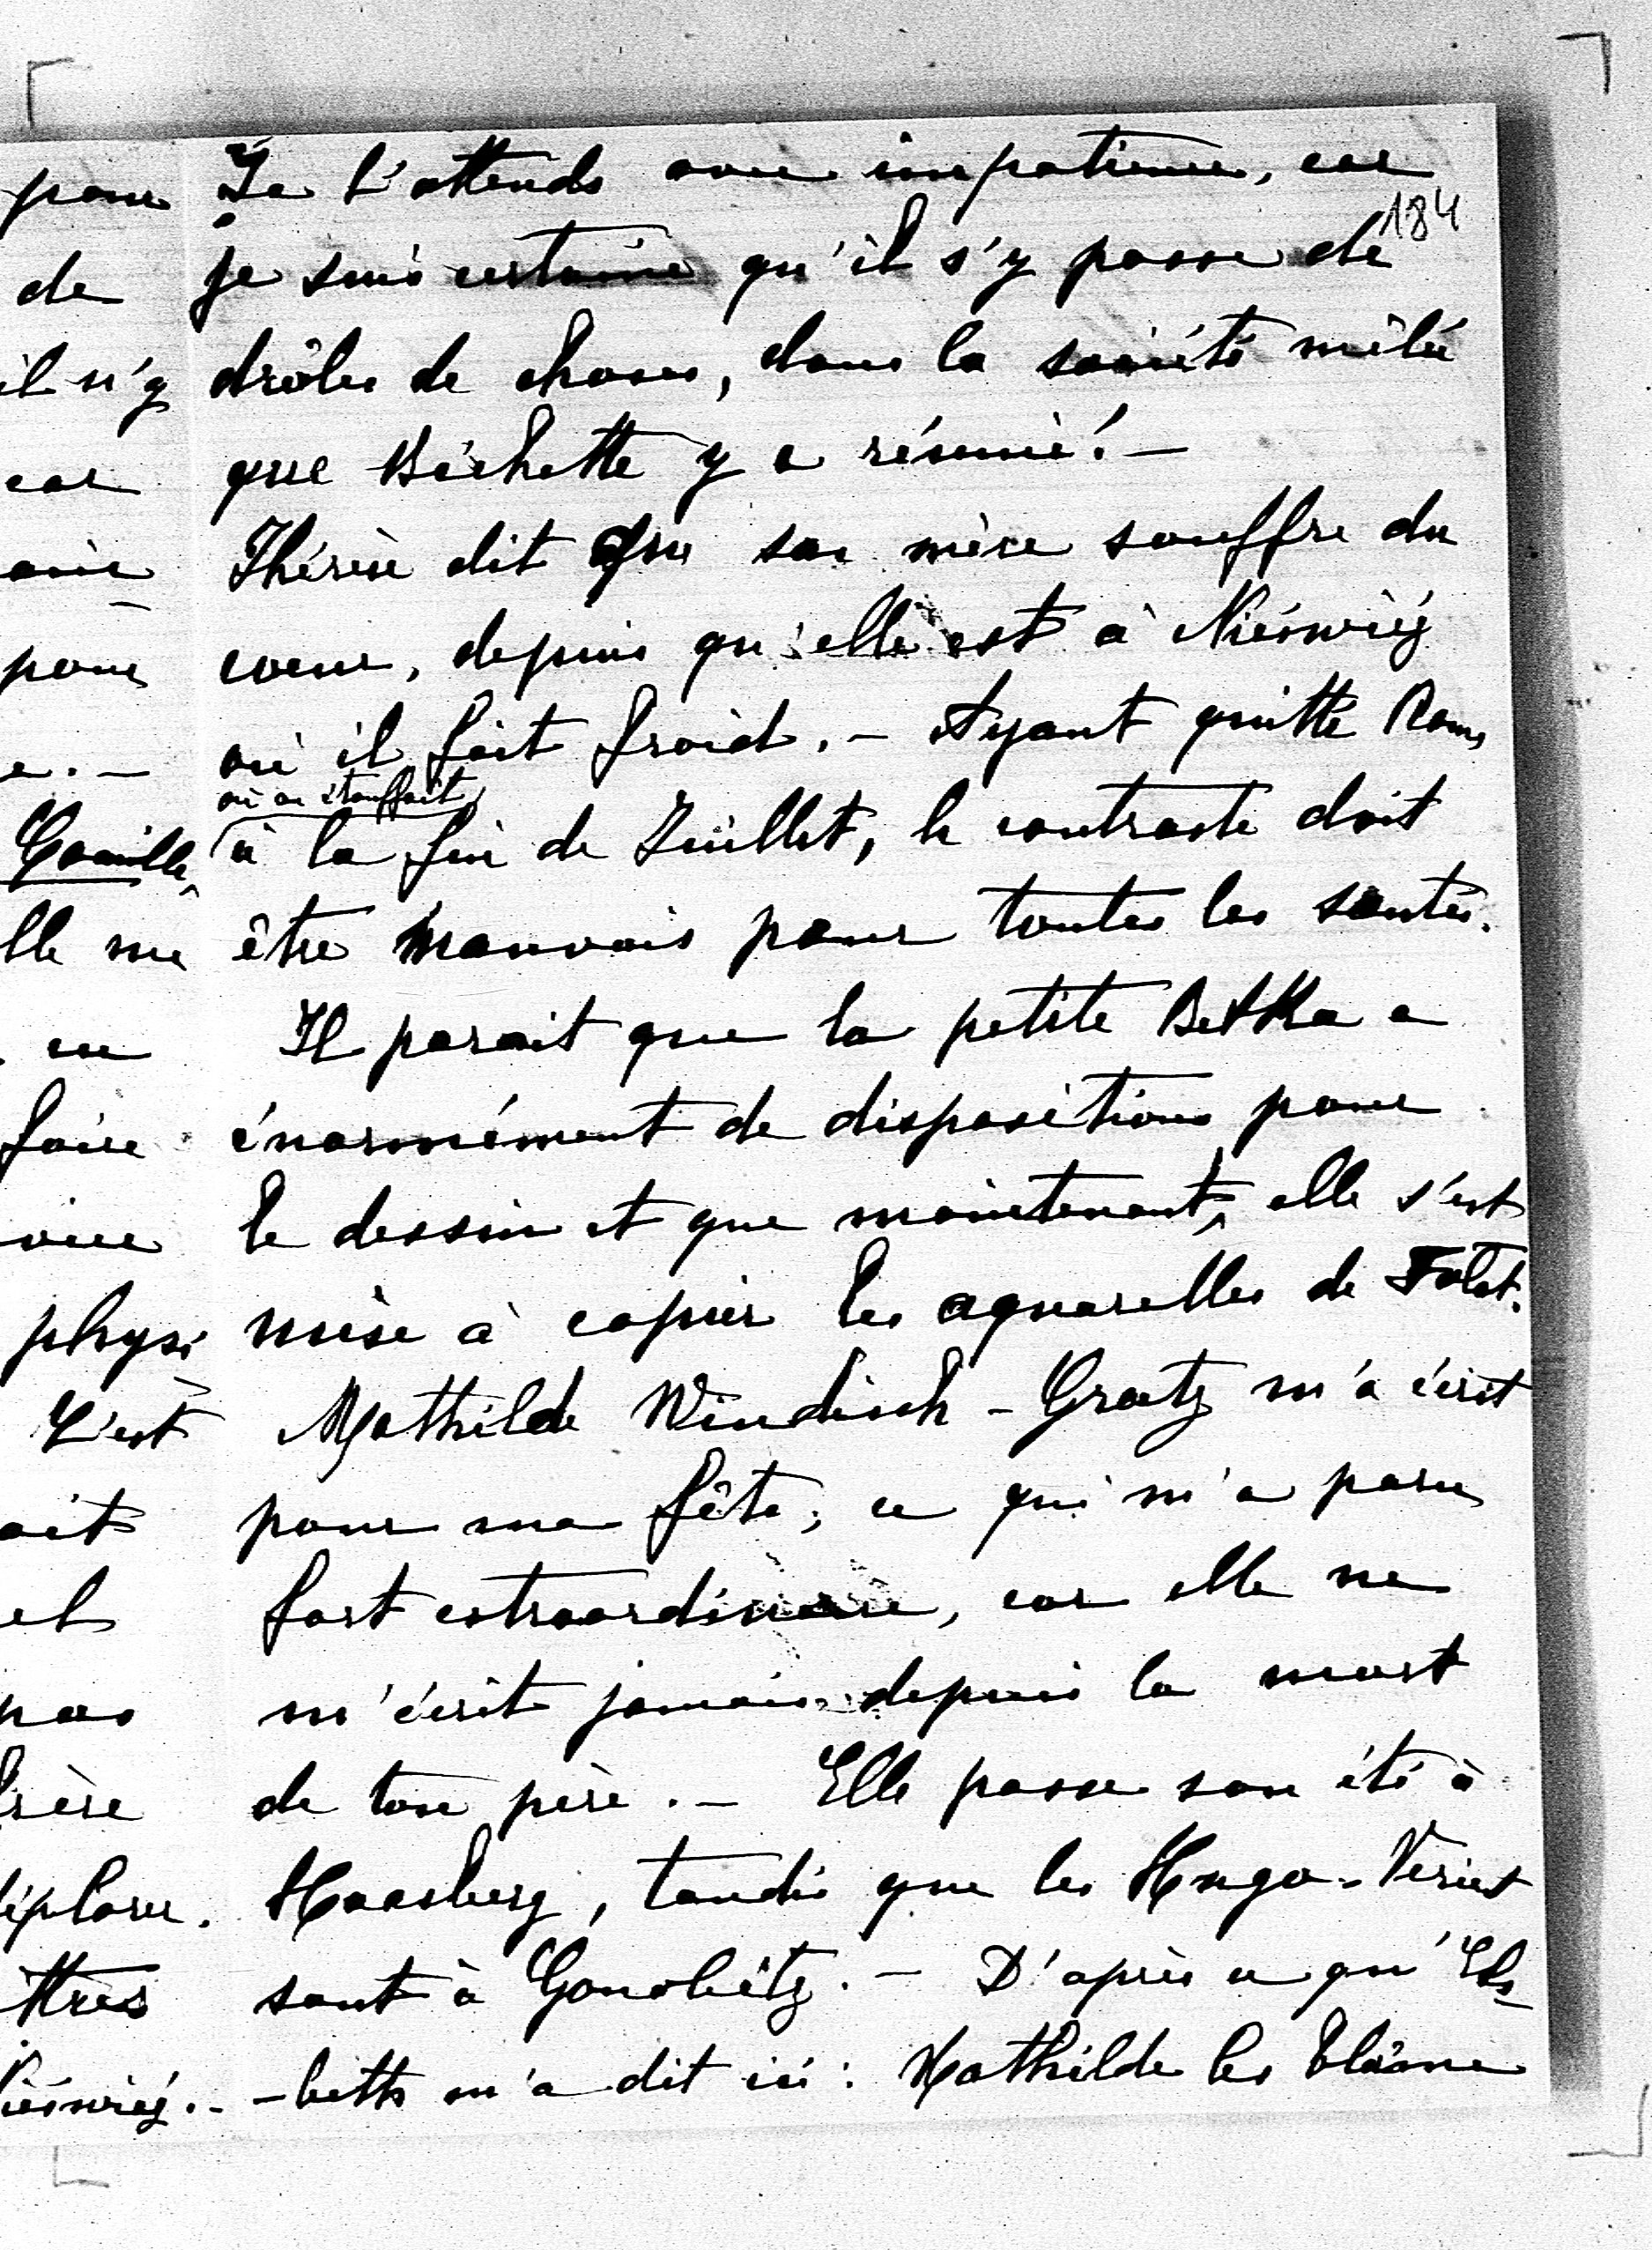 Je l'attends avec impatience, car
184
je suis certaine qu'il s'y passe de
drôles de choses, dans la société mêlée
que Bichette y a réunie! —
Thérèse dit que sa mère souffre du
coeur, depuis qu'elle est à Nieswież
où il fait froid. — Ayant quitté Rome,
où on étouffait
à la fin de Juillet, le contraste doit
être mauvais pour toutes les santés.
Il parait que la petite Betka a
énormément de dispositions pour
le dessin et que maintenant, elle s'est
mise à copier les aquarelles de Falat.
Mathilde Windisch-Graetz m'a écrit
pour ma fête; ce qui m'a paru
fort extraordinaire, car elle ne
m'écrit jamais depuis la mort
de ton père. — Elle passe son été à
Haasberg, tandis que les Hugo-Vériat
sont à Gonobitz. — D'après ce qu'Elsbeth
-beth m'a dit ici: Mathilde les blâme
pour
de
il n'y
car
pour
Camille,
lle me
en
faire
physi
C'est
ait
el
pas
frère
déplorer.
ttres
Nieswież. —